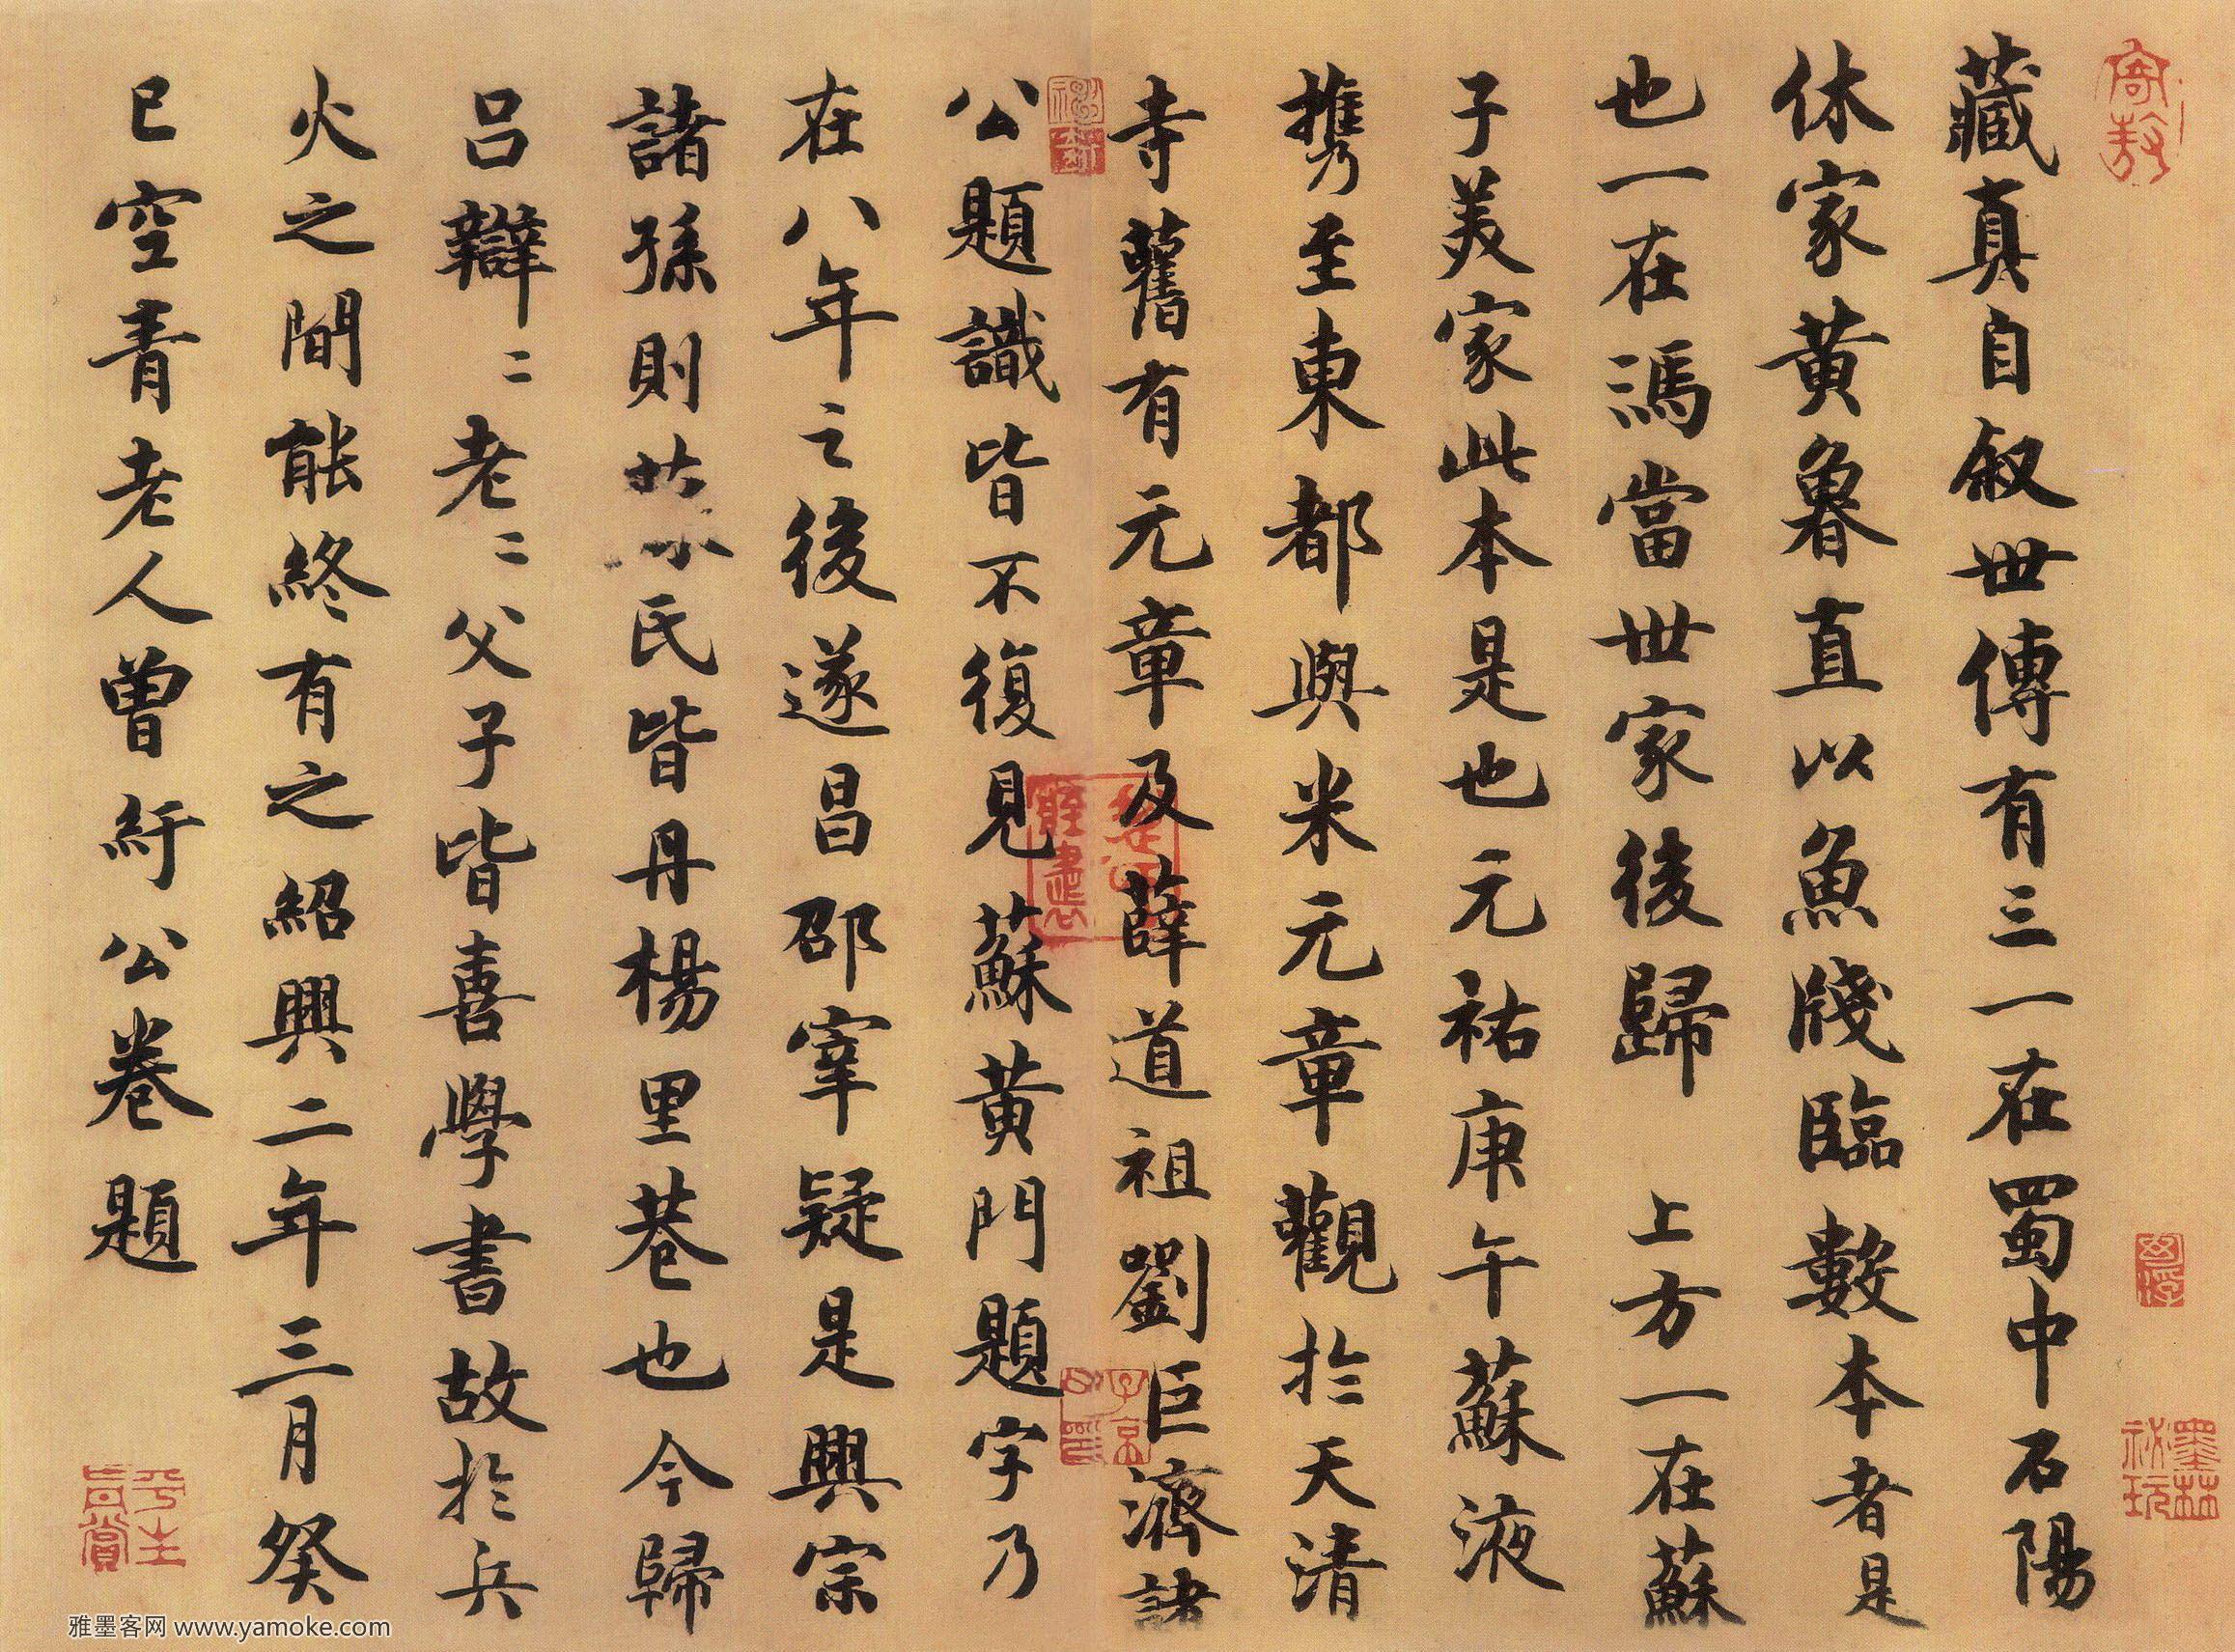 藏真自叙世傳有三一在蜀中石陽
休家黃魯直以魚牋臨數本者是
也一在馮當世家後歸 上方一在蘇
子美家此本是也元祐庚午蘇液
攜至東都與米元章觀於天清
寺舊有元章及薛道祖劉巨濟諸
公題識皆不復見蘇黃門題字乃
在八年之後遂昌邵宰疑是興宗
諸孫則蘇氏皆丹楊里巷也今歸
吕辯二老二父子皆喜學書故於兵
火之間能終有之紹興二年三月癸
巳空青老人曾紆公卷題
墨林祕玩
子京
平生真賞
雅墨客网 www.yamoke.com